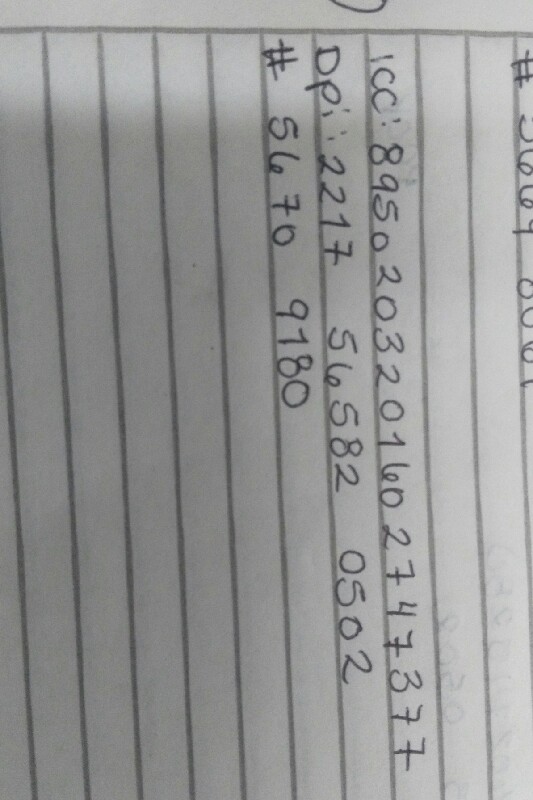 ICC: 8950203201602747377
Dpi: 2217 56582 0502
# 5670 9180